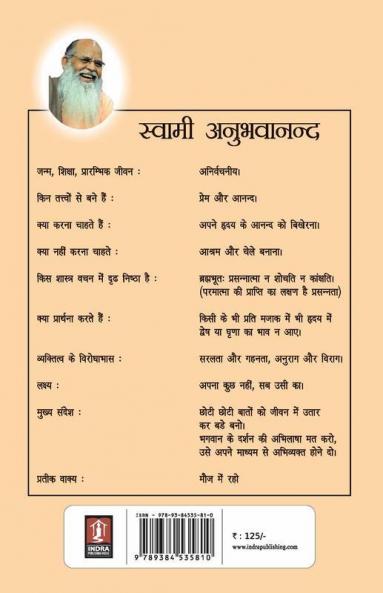 स्वामी अनुभवानन्द
जन्म, शिक्षा, प्रारम्भिक जीवन : अनिर्वचनीय।
किन तत्त्वों से बने हैं : प्रेम और आनन्द।
क्या करना चाहते हैं : अपने हृदय के आनन्द को बिखेरना।
क्या नहीं करना चाहते : आश्रम और चेले बनाना।
किस शास्त्र वचन में दृढ निष्ठा है : ब्रह्मभूतः प्रसन्नात्मा न शोचति न कांक्षति।
(परमात्मा की प्राप्ति का लक्षण है प्रसन्नता)
क्या प्रार्थना करते हैं : किसी के भी प्रति मजाक में भी हृदय में
द्वेष या घृणा का भाव न आए।
व्यक्तित्व के विरोधाभास : सरलता और गहनता, अनुराग और विराग।
लक्ष्य : अपना कुछ नहीं, सब उसी का।
मुख्य संदेश : छोटी छोटी बातों को जीवन में उतार
कर बडे बनो।
भगवान के दर्शन की अभिलाषा मत करो,
उसे अपने माध्यम से अभिव्यक्त होने दो।
प्रतीक वाक्य : मौज में रहो
ISBN - 978-93-84535-81-0
INDRA
PUBLISHING HOUSE
9789384535810
₹ : 125/-
www.indrapublishing.com